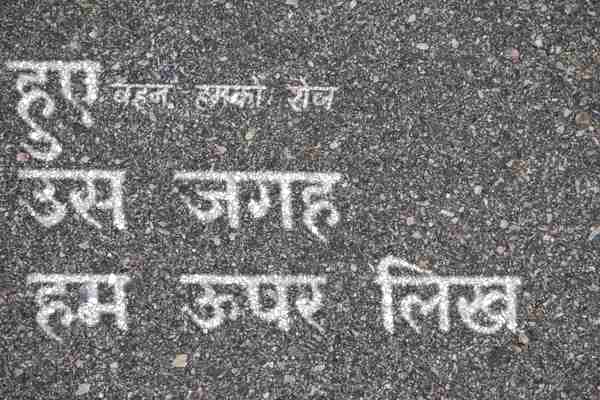 हुए बहन हमको रोज
उस जगह
हम ऊपर लिख